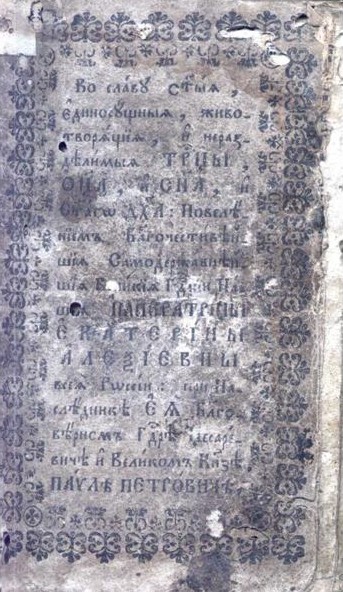 Во славу ст҃ыѧ,
є҆диносꙋщныѧ, живо-
творѧщїѧ, и҆ нераз-
дѣлимыѧ ТРЦ҃Ы,
ОЦ҃А, и҆ СН҃А, и҆
СТ҃АГѠ ДХ҃А: Повелѣ-
нїемъ Благочестивѣй-
шїѧ Самодержавнѣй-
шїѧ Великїѧ Гдⷭ҇рни На-
шеѧ ИМПЕРАТРИЦЫ
ЕКАТЕРІНЫ
АЛЕѮІЕВНЫ
всеѧ Рѡссїи: при На-
слѣдникѣ Є҆Ѧ̀ Благо-
вѣрномъ Гдⷭ҇рѣ Цесаре-
вичѣ и҆ Великомъ Кнѧ҃зѣ,
ПАѴЛѢ ПЕТРОВИЧѢ,